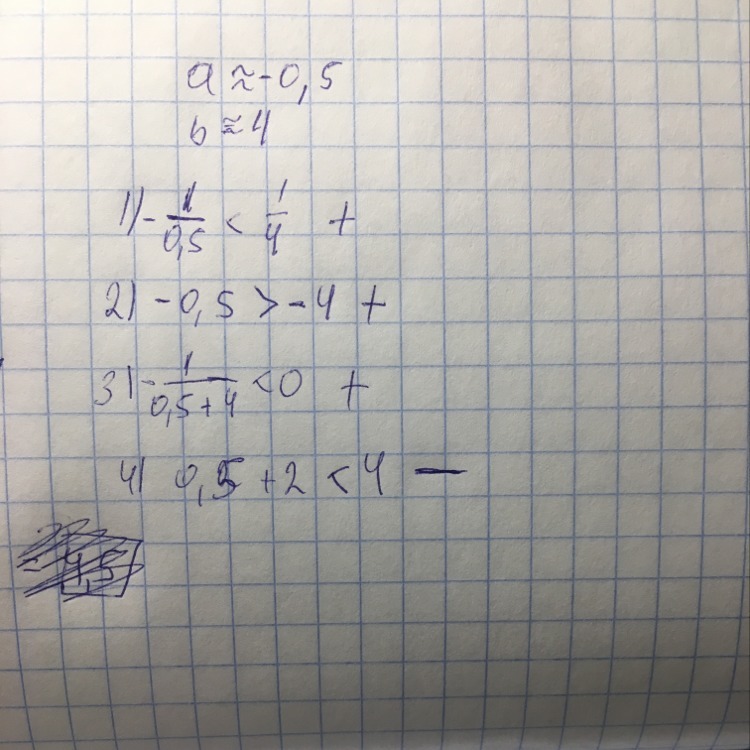 a ≈ -0,5
b ≈ 4
1) -1/0,5 < 1/4 +
2) -0,5 > -4 +
3) -1/(0,5+4) < 0 +
4) 0,5 + 2 < 4 —